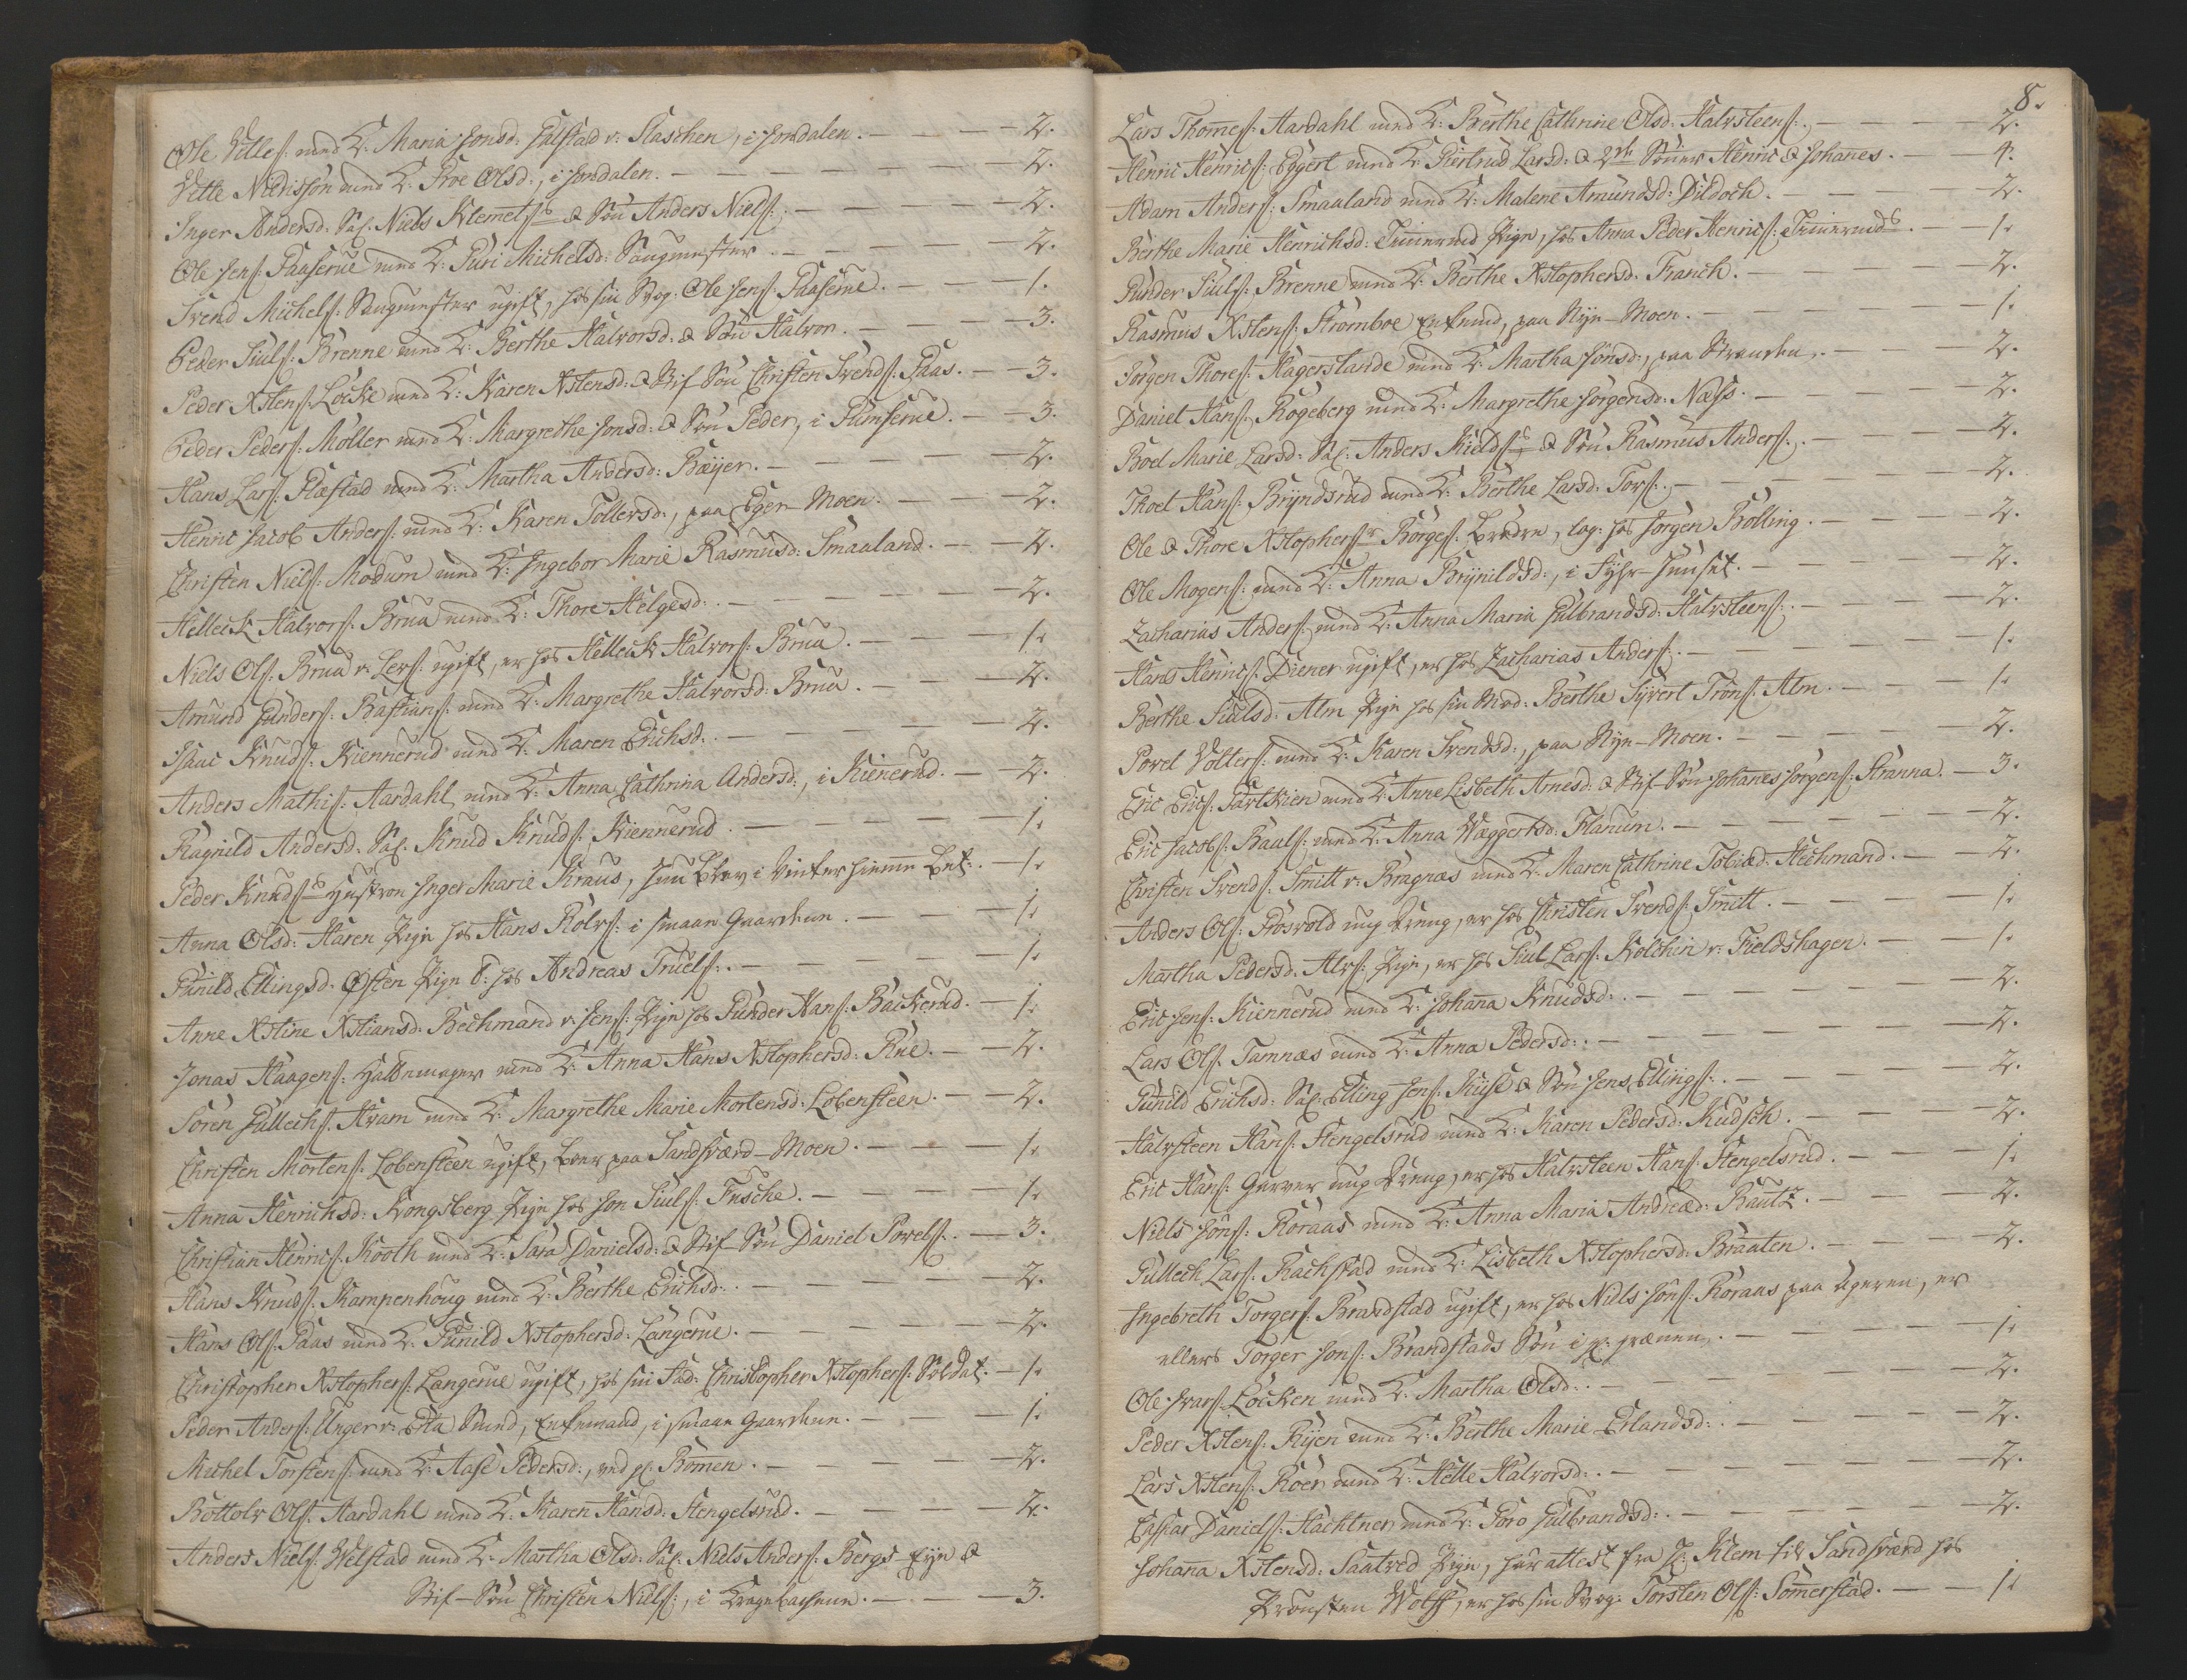 Ole Vittes: med K: Maria Jonsd: Falstad v: Flaschen, i Jondalen. — 2.
Vitte Nidrissøn med K: Troe Olsd:, i Jondalen. — 2.
Inger Andersd: Sal: Niels Klemets: & Søn Anders Niels: — 2.
Ole Jens: Paaserue med K: Guri Michelsd: Saugmester. — 2.
Svend Michels: Saugmester ugift, hos sin Svog: Ole Jens: Paaserue. — 1.
Peder Siuls: Brenne med K: Berthe Halvorsd: & Søn Halvor. — 3.
Peder Xstens: Løcke med K: Karen Xstensd: & Stif Søn Christen Svends: Gaas. — 3.
Peder Peders: Møller med K: Margrethe Jonsd: & Søn Peder, i Gunserue. — 3.
Hans Lars: Flæstad med K: Martha Andersd: Bæyer. — 2.
Henric Jacob Anders: med K: Karen Tollersd:, paa Eger-Moen. — 2.
Christen Niels: Modum med K: Ingebor Marie Rasmusd: Smaaland. — 2.
Helleick Halvors: Brua med K: Thore Helgesd: — 2.
Niels Ols: Brua v: Lers: ugift, er hos Helleick Halvors: Brua. — 1.
Amund Gunders: Bastians: med K: Margrethe Halvorsd: Brua. — 2.
Isaac Knuds: Kiennerud med K: Maren Erichsd: — 2.
Anders Mathis: Aardahl med K: Anna Cathrina Andersd:, i Kienerud. — 2.
Ragnild Andersd: Sal: Knud Knuds: Kiennerud. — 1.
Peder Knuds: Hustroe Inger Marie Kraus, hun blev i Vinter hiemme bet: — 1.
Anna Olsd: Haren Pige hos Hans Rolvs: i smaae Gaardene. — 1.
Gunild Ellingsd: Østen Pige T: hos Andreas Truels: — 1.
Anne Xstine Xstiansd: Bechmand v: Jens: Pige hos Gunder Hans: Backerud. — 1.
Jonas Haagens: Hattemager med K: Anna Hans Xstophersd: Rue. — 2.
Søren Gullechs: Kram med K: Margrethe Marie Mortensd: Lobensteen. — 2.
Christen Mortens: Lobensteen ugift, boer paa Sandsværd-Moen. — 1.
Anna Henrichsd: Kongsberg Pige hos Jon Siuls: Fusche. — 1.
Christian Henrics: Kooth med K: Sara Danielsd: & Stif-Søn Daniel Povels: — 3.
Hans Knuds: Kampenhoug med K: Berthe Erichsd: — 2.
Hans Ols: Gaas med K: Gunild Xstophersd: Langerue. — 2.
Christopher Xstophers: Langerue ugift, hos sin Fad: Christopher Xstophers: Soldat. — 1.
Peder Anders: Unger v: Etta Smed, Enkemand, i smaae Gaardene. — 1.
Michel Torstens: med K: Aase Pedersd:, ved gl: Bommen. — 2.
Bottolv Ols: Aardahl med K: Karen Hansd: Stengelsrud. — 2.
Anders Niels: Welstad med K: Martha Olsd: Sal: Niels Anders: Bergs Eye &
Stif-Søn Christen Niels:, i Kragebachene. — 3.
8.
Lars Thomes: Aardahl med K: Berthe Cathrine Olsd: Halvsteens: — 2.
Henric Henrics: Eggert med K: Giertrud Larsd: & 2de Sønner Henric & Johanes. — 4.
Adam Anders: Smaaland med K: Malene Amundsd: Dildoch. — 2.
Berthe Marie Henrichsd: Trinerud Pige, hos Anna Peder Henrics: Trineruds. — 1.
Gunder Siuls: Brenne med K: Berthe Xstophersd: Franch. — 2.
Rasmus Xstens: Strømboe Enkemd, paa Nye-Moen. — 1.
Jørgen Thores: Hagerslande med K: Martha Jonsd:, paa Stranden. — 2.
Daniel Hans: Rogeberg med K: Margrethe Jørgensd: Næss. — 2.
Boel Marie Larsd: Sal: Anders Kields: & Søn Rasmus Anders: — 2.
Thoel Hans: Bryndsrud med K: Berthe Larsd: Tors: — 2.
Ole & Thore Xstophers: Børges: Brødre, log: hos Jørgen Bølling. — 2.
Ole Mogens: med K: Anna Brynildsd:, i Fyhr-Huuset. — 2.
Zacharias Anders: med K: Anna Maria Gulbrandsd: Halvsteens: — 2.
Hans Henrics: Diener ugift, er hos Zacharias Anders: — 1.
Berthe Siulsd: Alm Pige hos sin Mod: Berthe Syvert Trons: Alm. — 1.
Povel Volters: med K: Karen Svendsd:, paa Nye-Moen. — 2.
Eric Erics: Tartskien med K: Anne Lisbeth Arnesd: & Stif-Søn Johanes Jørgens: Stranna. — 3.
Eric Jacobs: Baals: med K: Anna Wæggertsd: Flanum. — 2.
Christen Svends: Smitt v: Bragnæs med K: Maren Cathrine Tobiæd: Hechmand. — 2.
Anders Ols: Fosvold ung Dreng, er hos Christen Svends: Smitt. — 1.
Martha Pedersd: Alvs: Pige, er hos Siul Lars: Kolchin v: Fieldshagen. — 1.
Eric Jens: Kiennerud med K: Johana Knudsd: — 2.
Lars Ols: Tamnæs med K: Anna Pedersd: — 2.
Gunild Erichsd: Sal: Elling Jens: Kuse & Søn Jens Ellings: — 2.
Halvsteen Hans: Stengelsrud med K: Karen Pedersd: Kudsch. — 2.
Eric Hans: Garver ung Dreng, er hos Halvsteen Hans: Stengelsrud. — 1.
Niels Jøns: Røraas med K: Anna Maria Andreæd: Kautz. — 2.
Gullech Lars: Rachstad med K: Lisbeth Xstophersd: Braaten. — 2.
Ingebreth Torgers: Brandstad ugift, er hos Niels Jøns: Røraas paa Ageren, er
ellers Torger Jons: Brandstads Søn i — 1.
Ole Ivars: Løcken med K: Martha Olsd: — 2.
Peder Xstens: Ryen med K: Berthe Marie Erlandsd: — 2.
Lars Xstens: Roer med K: Helle Halvorsd: — 2.
Caspar Daniels: Hachtner med K: Goro Gulbrandsd: — 2.
Johana Xstensd: Saatved Pige, har attest fra H: Klem til Sandsværd hos
Provsten Wolff, er hos sin Svog: Torsten Ols: Somerstad. — 1.